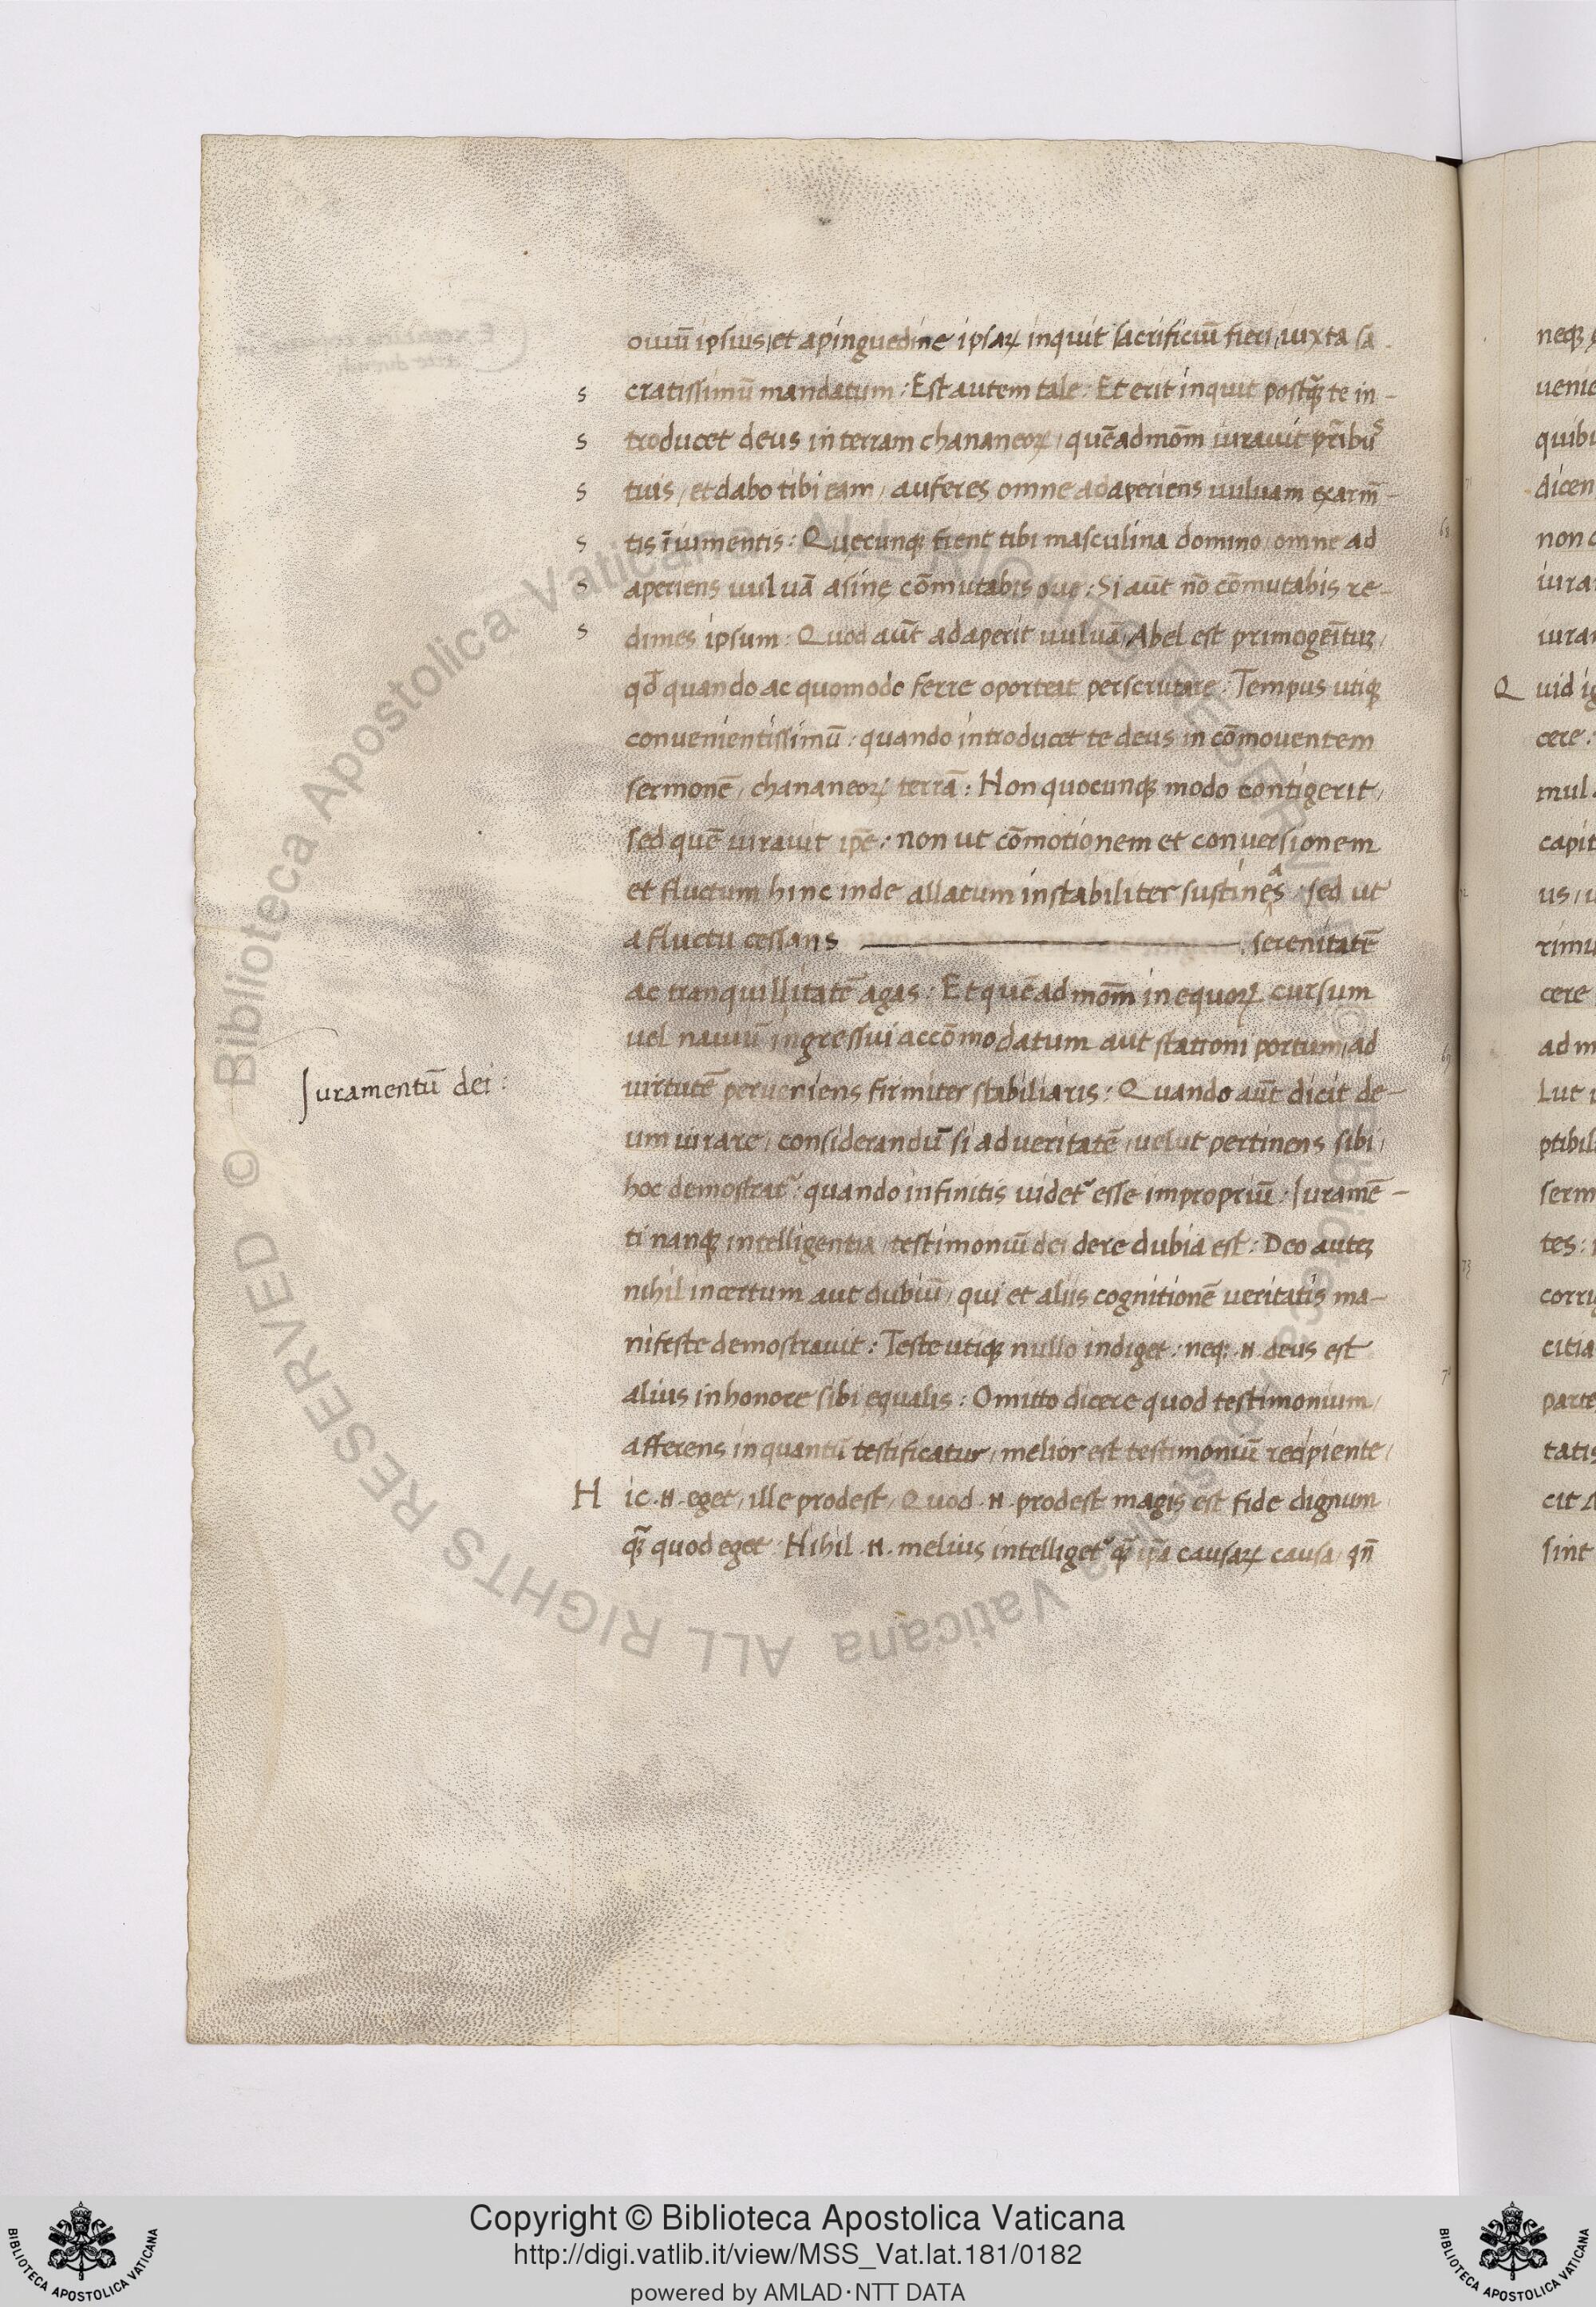 ouiū ipsius, et a pinguedine ipsaꝝ inquit sacrificiū fieri, iuxta sa
s cratissimū mandatum: Est autem tale: Et erit inquit postq̄ te in-
s troducet deus in terram chananeoꝝ, quēadmōm iurauit pr̄ibus
s tuis, et dabo tibi eam, auferes omne adaperiens uuluam ex arm̄-
s tis ī iumentis: Quęcunqꝫ fient tibi masculina domino, omne ad
s aperiens uuluā asinę cōmutabis oue: Si aūt nō cōmutabis re-
s dimes ipsum: Quod aūt adaperit uuluā, Abel est primogēituꝫ,
qd̄ quando ac quomodo ferre oporteat perscrutare: Tempus utiqꝫ
conuenientissimū: quando introducet te deus in cōmouentem
sermonē, chananeoꝝ terrā: Non quocunqꝫ modo contigerit,
sed quē iurauit ip̄e: non ut cōmotionem et conuersionem
et fluctum hinc inde allatum instabiliter sustineas: sed ut
a fluctu cessans ——— serenitatē
ac tranquillitatē agas: Et quēadmōm in equoꝝ cursum
uel nauiū ingressui accōmodatum aut stationi portum, ad
Iuramentū dei:
uirtutē perueniens firmiter stabiliaris: Quando aūt dicit de-
um iurare, considerandū si ad ueritatē, uelut pertinens sibi,
hoc demostrat᷑: quando infinitis uidet᷑ esse impropriū: Iuramē-
ti nanqꝫ intelligentia, testimoniū dei de re dubia est: Deo auteꝫ
nihil incertum aut dubiū, qui et aliis cognitionē ueritatis ma-
nifeste demostrauit: Teste utiqꝫ nullo indiget: neqꝫ .N. deus est
alius in honore sibi equalis: Omitto dicere quod testimonium,
afferens in quantū testificatur, melior est testimoniū recipiente,
Hic .N. eget, ille prodest, Quod .N. prodest magis est fide dignum
q̄ quod eget: Nihil .N. melius intelliget᷑ q̄ ip̄a causaꝝ causa, qn̄
Copyright © Biblioteca Apostolica Vaticana
http://digi.vatlib.it/view/MSS_Vat.lat.181/0182
powered by AMLAD·NTT DATA